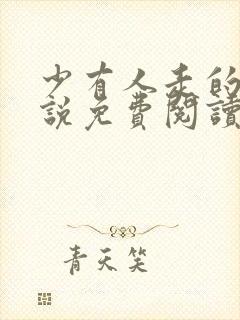 少有人走的
說免費閱讀
青天笑